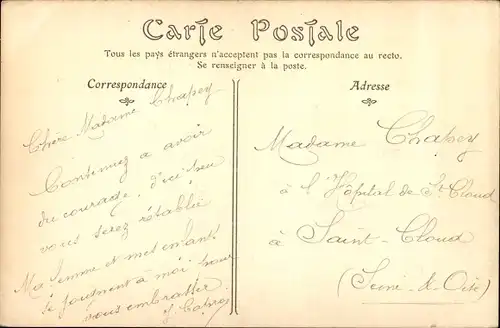 Carte Postale
Tous les pays étrangers n'acceptent pas la correspondance au recto.
Se renseigner à la poste.
Correspondance
Adresse
Chère Madame Chapey
Continuez a avoir
du courage, d'ici peu
vous serez rétablie
Ma femme et mes enfants
se joignent à moi pour
vous embrasser
Madame Chapey
à l'Hôpital de St Cloud
à Saint-Cloud
(Seine-&-Oise)